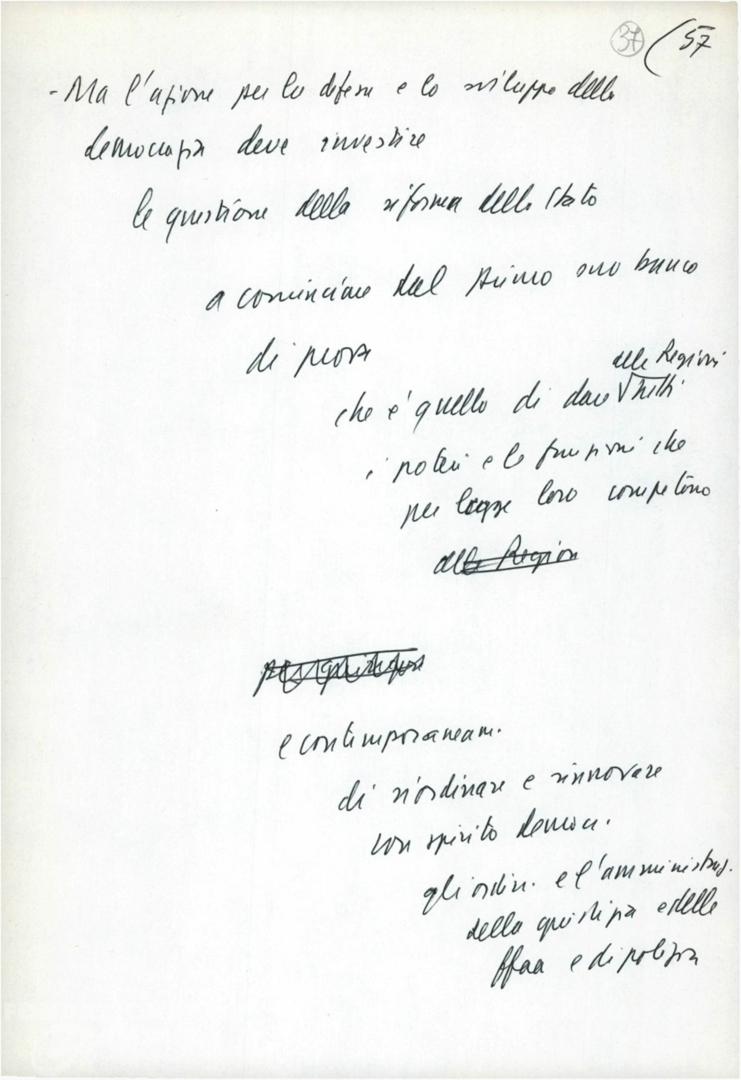 37 (57
- Ma l'azione per la difesa e lo sviluppo della
democrazia deve investire
la questione della riforma dello Stato
a cominciare dal primo suo banco
di prova
alle Regioni
che è quello di dare √ tutti
i poteri e le funzioni che
per legge loro competono
alle Regioni
e contemporaneam.
di riordinare e rinnovare
con spirito democr.
gli ordin. e l'amministraz.
della giustizia e delle
ffaa e di polizia